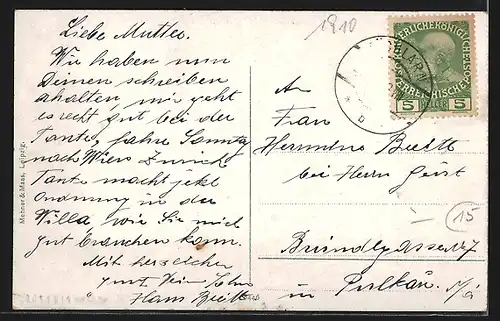 1910
Liebe Mutter.
Wir haben nun
Deinen schreiben
erhalten mir geht
es recht gut bei der
Tante, fahre Sonntag
nach Wien zurück
Tante macht jetzt
Ordnung in der
Villa, wie Sie mich
gut brauchen kann.
Mit herzlichen
Gruß Dein Sohn
Hans
Mehner & Maas, Leipzig.
5 HELLER 5
An
Frau
Hermine
bei Herrn Geist
15
in Pulkau. N/Ö